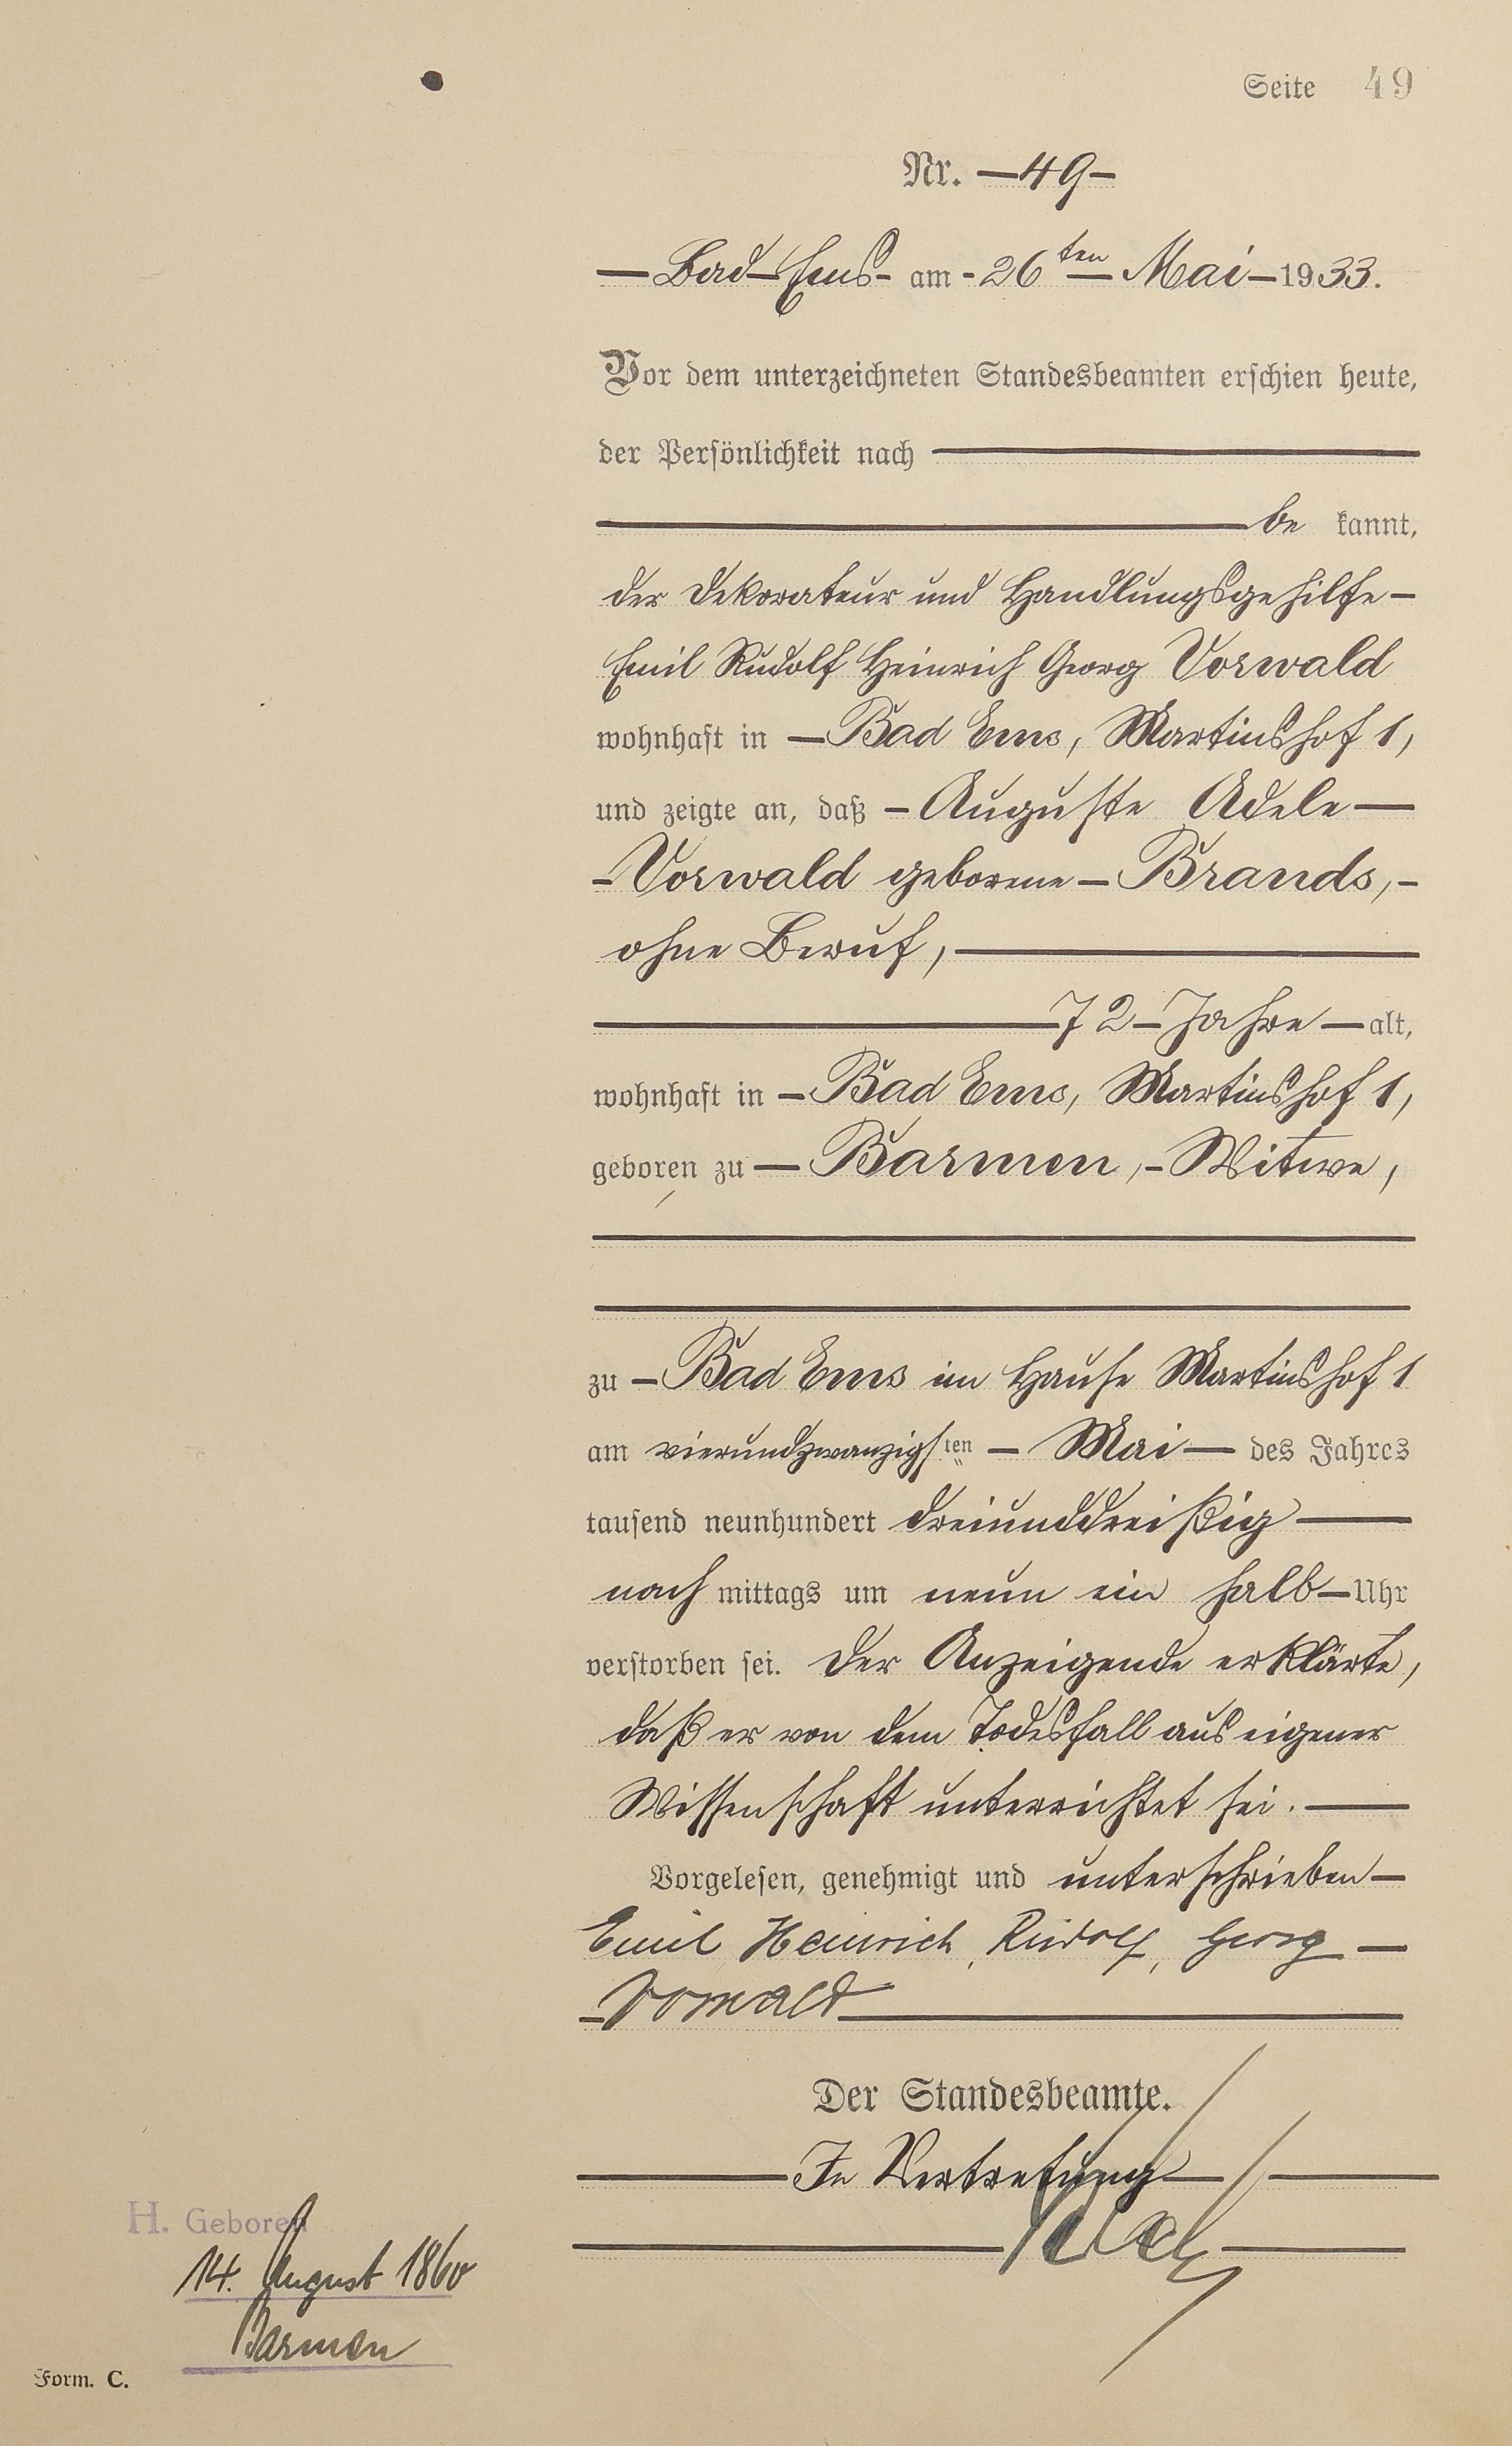 Seite 49
Nr. —49—
—Bad Ems- am -26ten— Mai—1933.
Vor dem unterzeichneten Standesbeamten erschien heute,
der Persönlichkeit nach
be kannt,
der Dekorateur und Handlungsgehilfe—
Emil Rudolf Heinrich Georg Vorwald
wohnhaft in —Bad Ems, Martinshof 1,
und zeigte an, daß —Auguste Adele—
-Vorwald geborene— Brands,-
ohne Beruf,
72—Jahre—alt,
wohnhaft in —Bad Ems, Martinshof 1,
geboren zu —Barmen,-Witwe,
zu —Bad Ems im Hause Martinshof 1
am vierundzwanzigsten — Mai — des Jahres
tausend neunhundert dreiunddreißig—
nach mittags um neun ein halb—Uhr
verstorben sei. Der Anzeigende erklärte,
daß er von dem Todesfall aus eigener
Wissenschaft unterrichtet sei.—
Vorgelesen, genehmigt und unterschrieben—
Emil, Heinrich, Rudolf, Georg—
-Vorwald
Der Standesbeamte.
In Vertretung
H. Geboren
14. August 1860
Barmen
Form. C.